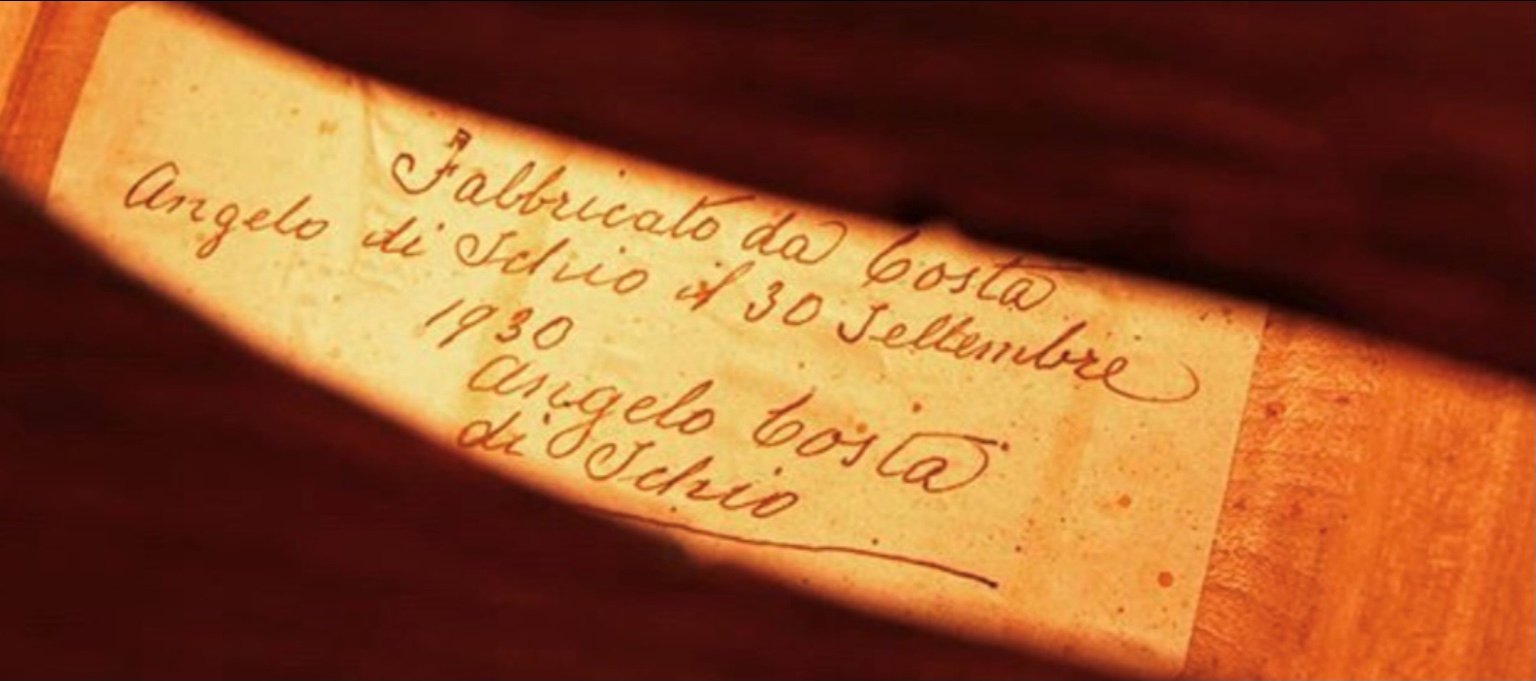 Fabbricato da Costa
Angelo di Schio il 30 Settembre
1930
Angelo Costa
di Schio